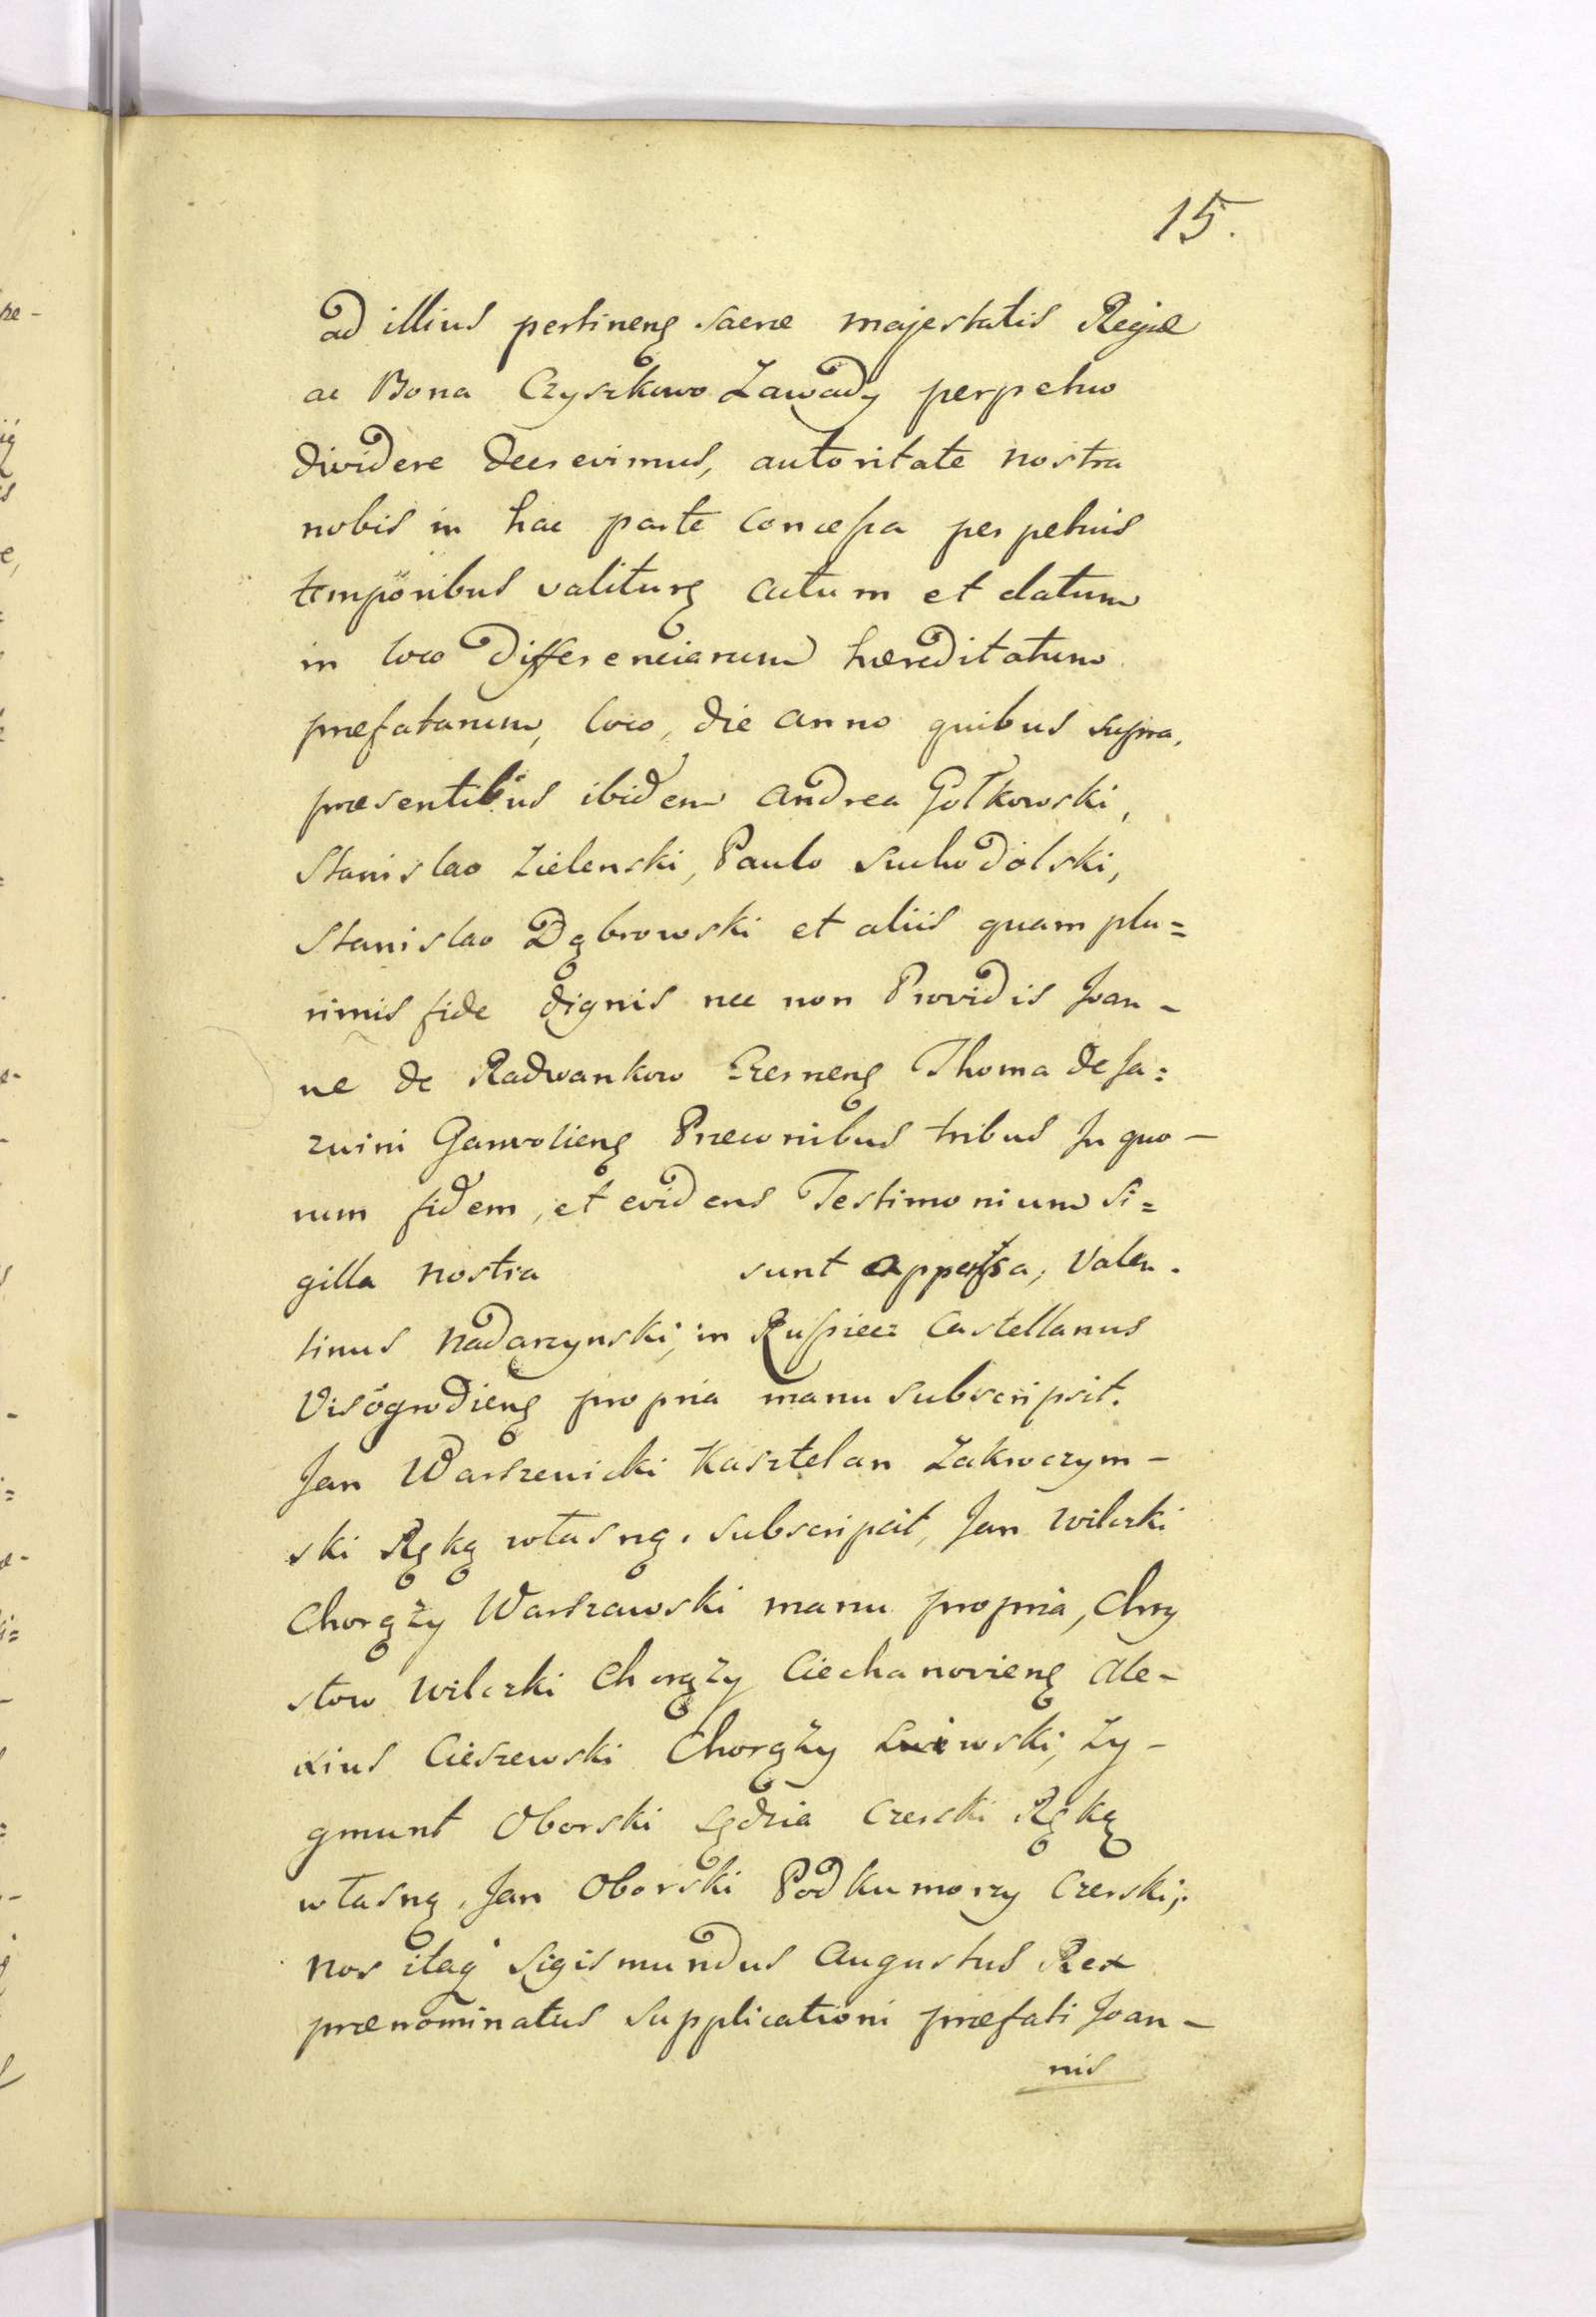 15.
ad illius pertineng sacræ majestatis Regiæ
ac Bona Czyszkowo Zawady perpetuo
dividere decrevimus, autoritate nostra
nobis in hac parte concessa perpetuis
temporibus valiturę actum et datum
in loco differenciarum hæreditatum
præfatarum, loco, die anno quibus supra,
præsentibus ibidem Andrea Gołkowski,
Stanislao Zielenski, Paulo Suchodolski,
Stanislao Dąbrowski et aliis quam plu=
rimis fide dignis nec non Providis Joan-
ne de Radwankow Czerneng Thoma de Ja=
zwini Garwolieng Præconibus tribus In quo-
rum fidem, et evidens Testimonium Si=
gilla nostra sunt appensa, Valen.
tinus Nadarzynski, in Ruspiecz Castellanus
Visogrodieng propria manu subscripsit.
Jan Warszewicki Kasztelan Zakroczym-
ski Ręką własną. subscripcit, Jan Wilczki
Chorąży Warszawski manu propria, Chry
stow Wilczki Chorąży Ciechanovieng Ale-
xius Cieszewski Chorąży Liwski, Zy-
gmunt Oborski Sędzia Czerski Ręką
własną, Jan Oborski Podkumorzy Czerski;
nos itaq Sigismundus Augustus Rex
prænominatus supplicationi præfati Joan-
nis